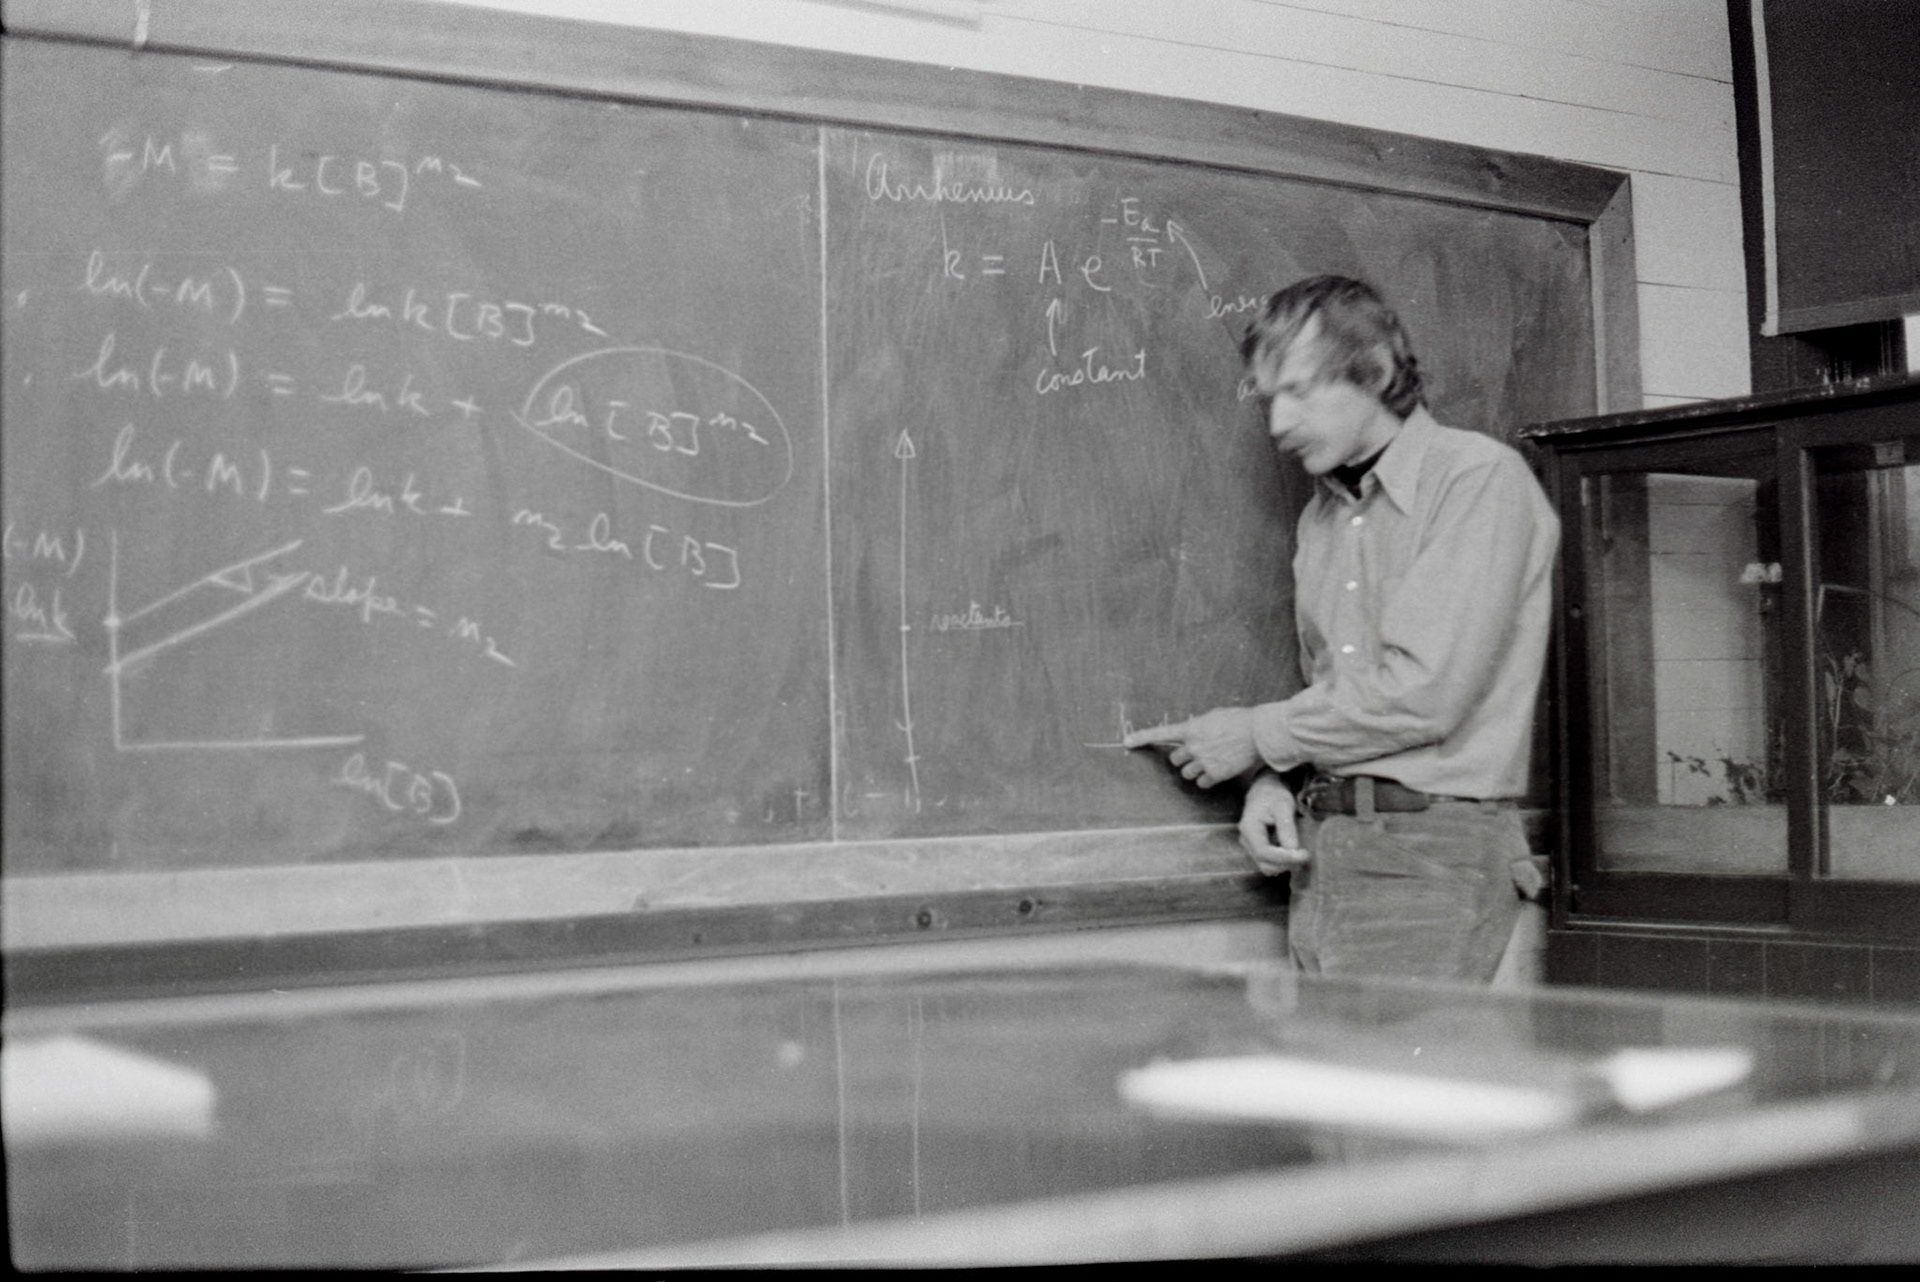 -M = k[B]^m₂
ln(-M) = lnk[B]^m₂
ln(-M) = lnk + ln[B]^m₂
ln(-M) = lnk + m₂ ln[B]
(-M)
lnk
slope = m₂
ln[B]
Arrhenius
k = A e^-Ea/RT
constant
reactants